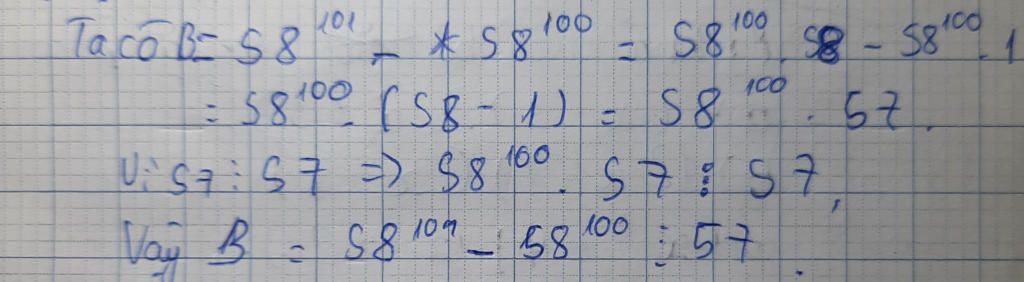 Ta có B = 58¹⁰¹ - 58¹⁰⁰ = 58¹⁰⁰ . 58 - 58¹⁰⁰ . 1
= 58¹⁰⁰ . (58 - 1) = 58¹⁰⁰ . 57.
Vì 57 ⋮ 57 => 58¹⁰⁰ . 57 ⋮ 57,
Vậy B = 58¹⁰¹ - 58¹⁰⁰ ⋮ 57.